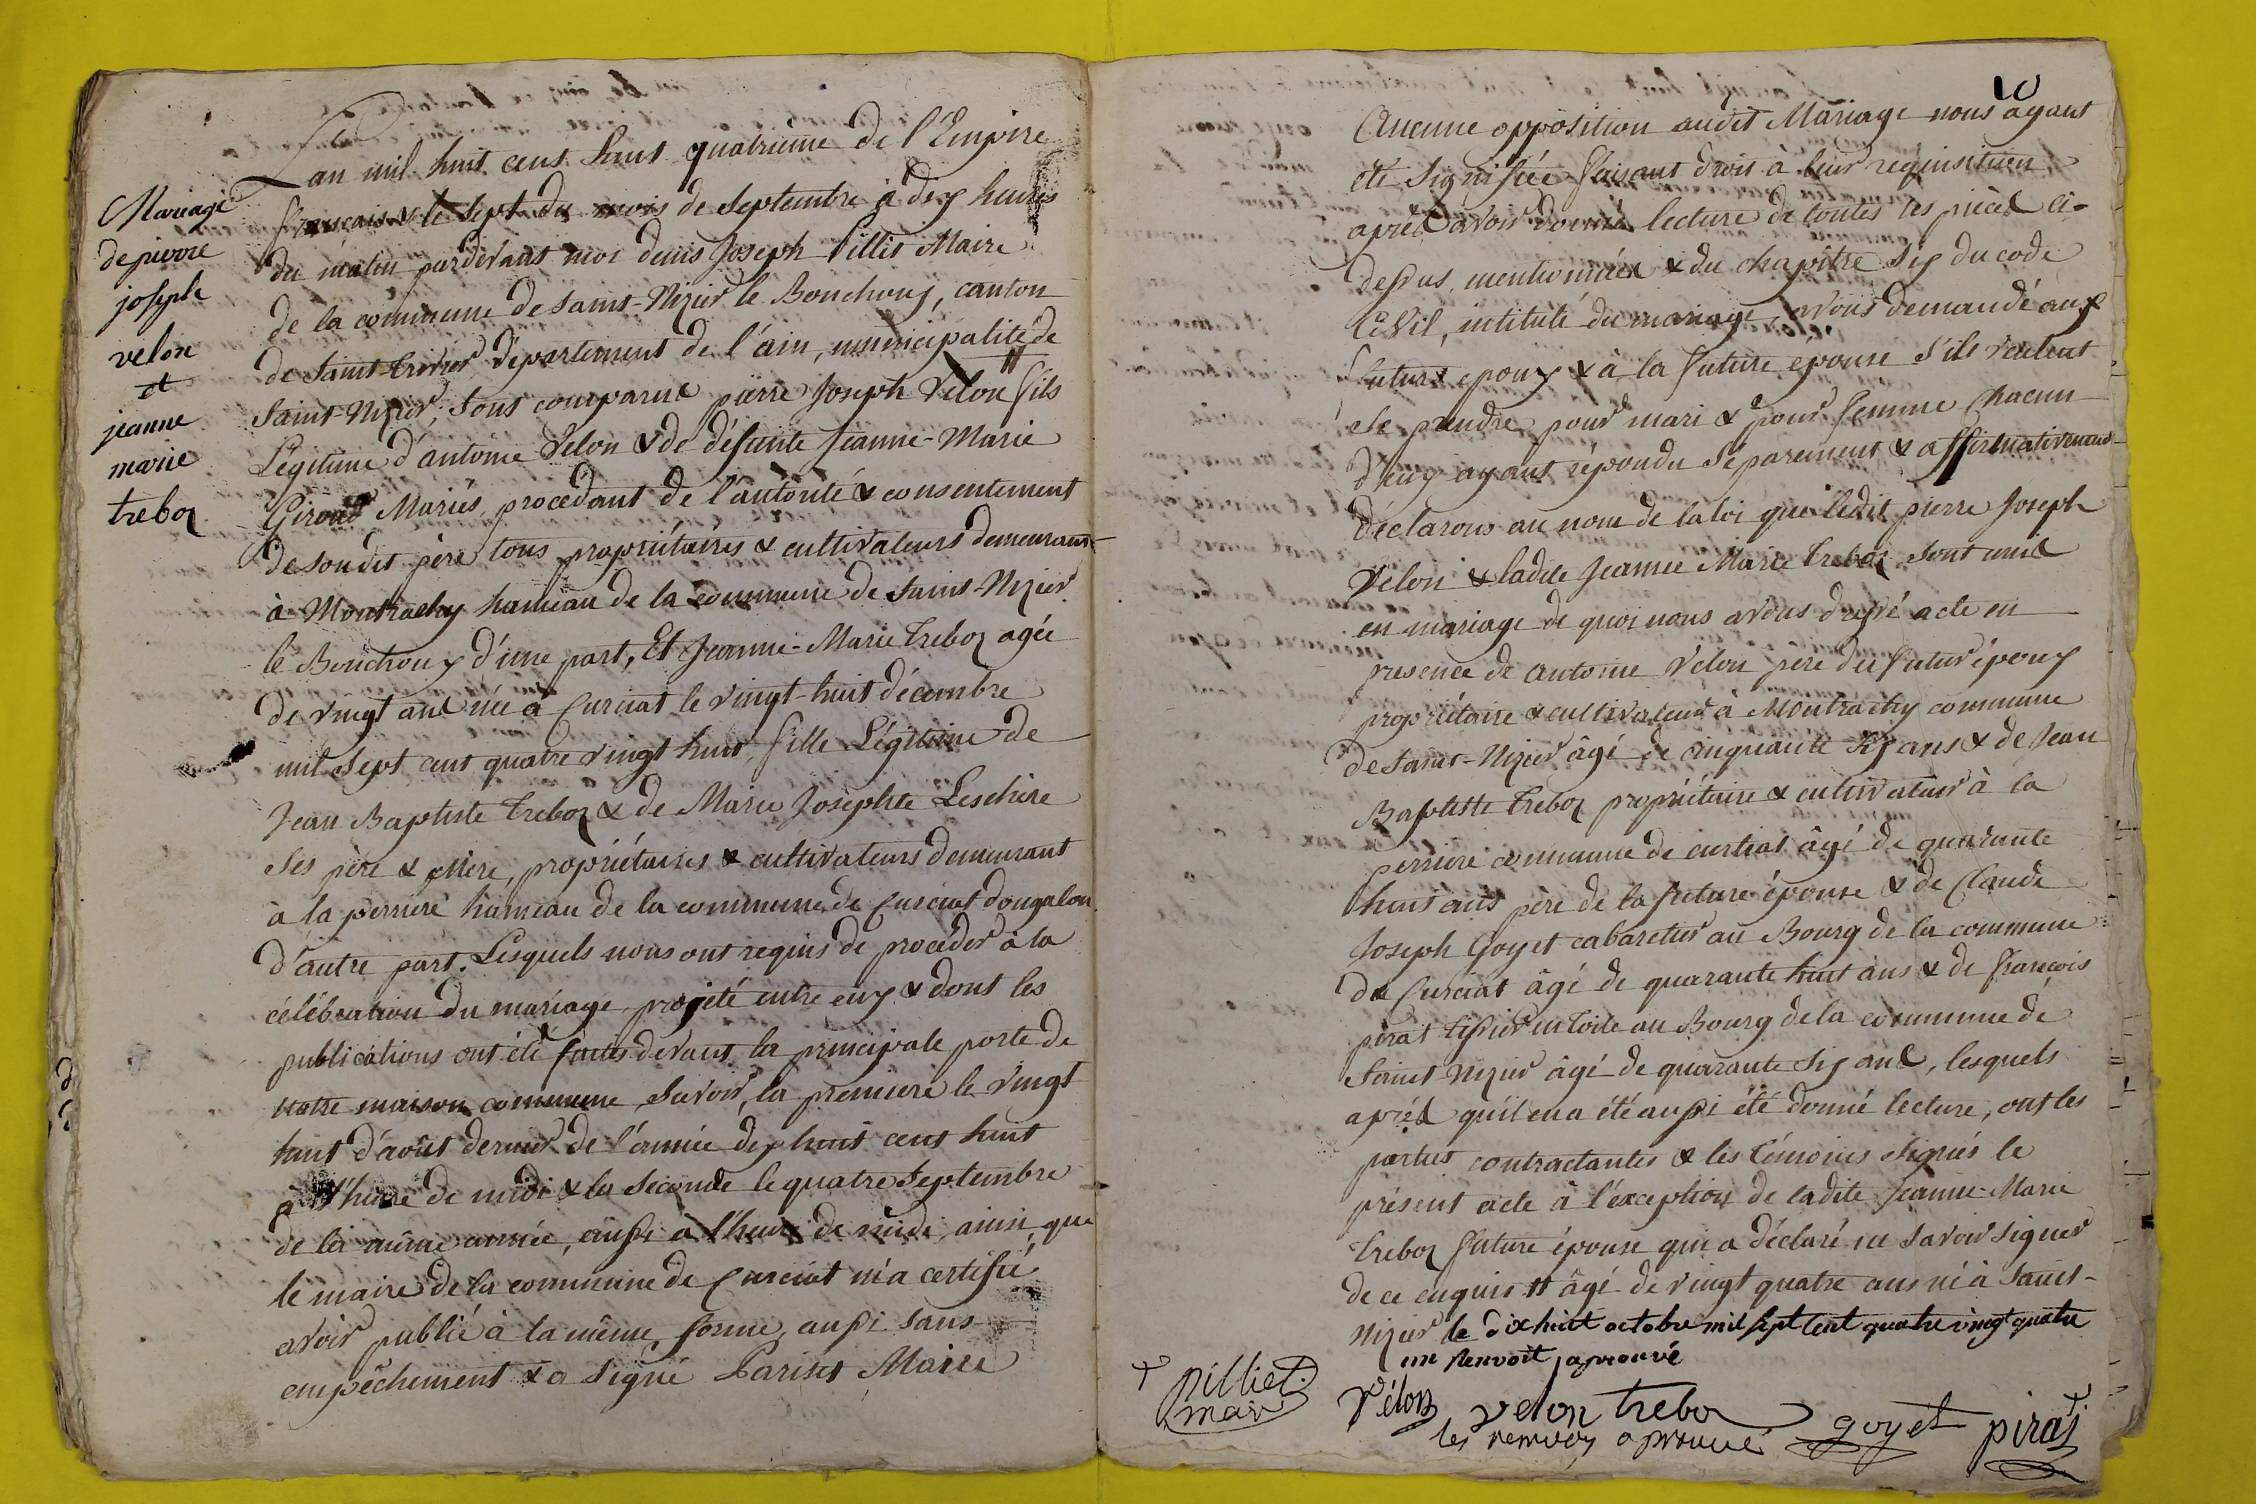 Mariage
de pierre
joseph
velon
et
jeanne
marie
treboz
L'an mil huit cent huit quatrieme de l'Empire
français & le sept du mois de Septembre à dix heures
du matin pardevant moi denis Joseph Pillict Maire
de la commune de saint-Nizier le Bouchoux, canton
de saint-trivier département de l'ain, municipalité de
Saint-Nizier, sont comparus pierre Joseph Velon # fils
Légitime d'antoine Velon & de défunte Jeanne-Marie
Giroud Mariés, procédant de l'autorité & consentement
de son dit père tous propriétaires & cultivateurs demeurant
à Montrachy hameau de la commune de saint-Nizier
le Bouchoux d'une part, Et Jeanne-Marie Treboz agée
de vingt ans née à Curciat le vingt-huit décembre
mil sept cent quatre vingt huit, fille Légitime de
Jean Baptiste Treboz & de Marie Josephte Leschere
ses père & mère, propriétaires & cultivateurs demeurant
à la perriere hameau de la commune de Curciat dongalon
d'autre part. Lesquels nous ont requis de procéder à la
célébration du mariage projeté entre eux & dont les
publications ont été faites devant la principale porte de
notre maison commune, savoir, la premiere le vingt
huit d'août dernier de l'année dix huit cent huit
à l'heure de midi & la seconde le quatre Septembre
de la même année, aussi à l'heure de midi, ainsi que
le maire de la commune de Curciat m'a certifié
avoir publié à la même forme, aussi sans
empêchement & a signé Pariset Maire
10
Aucune opposition audit Mariage nous ayant
été signifiée faisant droit à leur requisition
après avoir donné lecture de toutes les pièces ci-
dessus mentionnées & du chapitre six du code
Civil, intitulé du mariage, avons demandé aux
futurs epoux & à la future épouse s'ils veulent
se prendre pour mari & pour femme chacun
d'eux ayant répondu séparement & affirmativement
déclarons au nom de la loi que ledit pierre Joseph
Velon & ladite Jeanne Marie Treboz sont unis
en mariage de quoi nous avons dressé acte en
presence de antoine Velon père du futur époux
propriétaire & cultivateur à Montrachy commune
de saint-Nizier âgé de cinquante six ans & de Jean
Baptiste Treboz propriétaire & cultivateur à la
perriere commune de curtiat âgé de quarante
huit ans père de la future épouse & de Claude
Joseph Goyet cabaretier au Bourg de la commune
de Curciat âgé de quarante huit ans & de françois
pirat tissier en toile au Bourg de la commune de
Saint-Nizier âgé de quarante six ans, lesquels
après qu'il en a été aussi été donné lecture, ont les
parties contractantes & les témoins signés le
présent acte à l'exception de ladite Jeanne-Marie
Treboz future épouse qui a déclaré ne savoir signer
de ce enquis # âgé de vingt quatre ans né à saint-
Nizier le dix huit octobre mil sept cent quatre vingt quatre
un renvoit aprouvé
pilliet
maire
Vélon velon trebo goyet pirat
les renvoy aprouvé